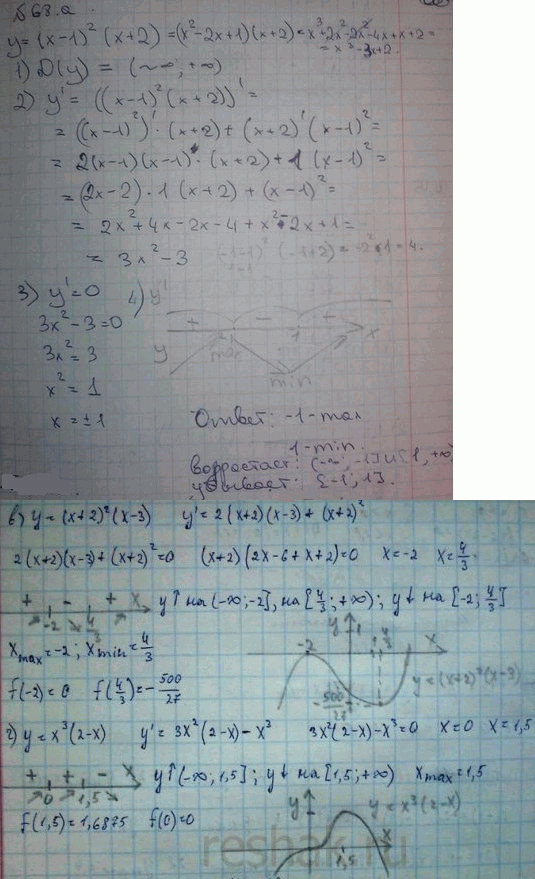 № 68.а.
y = (x-1)² (x+2) = (x²-2x+1)(x+2) = x³+2x²-2x²-4x+x+2 =
= x³-3x+2.
1) D(y) = (-∞; +∞)
2) y' = ((x-1)² (x+2))' =
= ((x-1)²)' · (x+2) + (x+2)' (x-1)² =
= 2(x-1)(x-1)' · (x+2) + 1 (x-1)² =
= (2x-2) · 1 (x+2) + (x-1)² =
= 2x² + 4x - 2x - 4 + x² - 2x + 1 =
= 3x² - 3
3) y' = 0 4) y'
3x² - 3 = 0 + - + x
3x² = 3 y max min
x² = 1
x = ± 1
Ответ: -1 - max
1 - min.
возрастает: (-∞; -1] U [1, +∞)
убывает: [-1; 1].
в) y = (x+2)² (x-3) y' = 2 (x+2) (x-3) + (x+2)²
2 (x+2) (x-3) + (x+2)² = 0 (x+2) (2x-6+x+2) = 0 x = -2 x = 4/3
+ -2 - 4/3 + x y↑ на (-∞; -2], на [4/3; +∞); y↓ на [-2; 4/3]
x max = -2; x min = 4/3
f(-2) = 0 f(4/3) = -500/27
y 1 -2 4/3 x -500/27 y = (x+2)² (x-3)
г) y = x³ (2-x) y' = 3x² (2-x) - x³ 3x² (2-x) - x³ = 0 x = 0 x = 1,5
+ 0 + 1,5 - x y↑ (-∞; 1,5]; y↓ на [1,5; +∞) x max = 1,5
f(1,5) = 1,6875 f(0) = 0
y y = x³ (2-x) x 1,5
reshak.ru